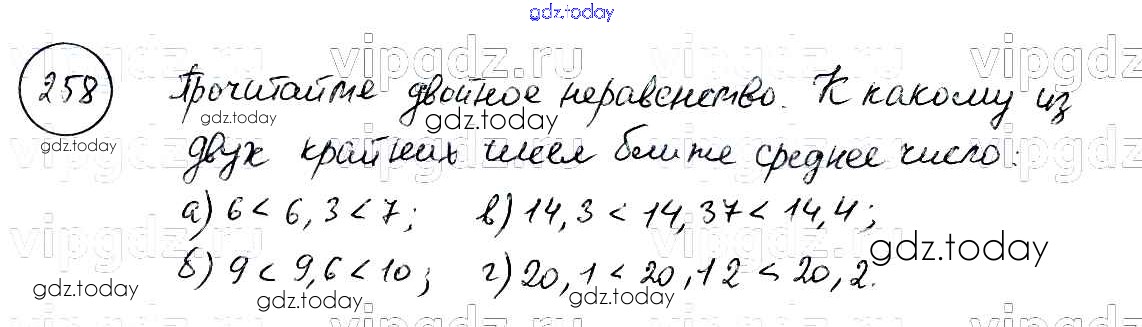 gdz.today
258 Прочитайте двойное неравенство. К какому из
двух крайних чисел ближе среднее число:
а) 6 < 6,3 < 7; в) 14,3 < 14,37 < 14,4;
б) 9 < 9,6 < 10; г) 20,1 < 20,12 < 20,2.
vipgdz.ru vipgdz.ru vipgdz.ru
gdz.today gdz.today gdz.today
gdz.today gdz.today
vipgdz.ru vipgdz.ru vipgdz.ru
gdz.today
vipgdz.ru vipgdz.ru vipgdz.ru
gdz.today gdz.today gdz.today